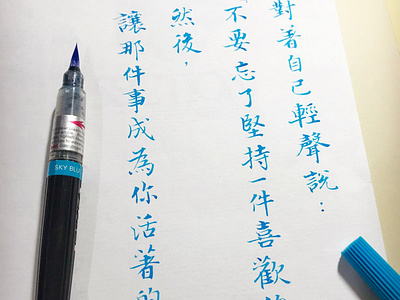 對著自己輕聲說：
「不要忘了堅持一件喜歡
然後，
讓那件事成為你活著的
SKY BLU